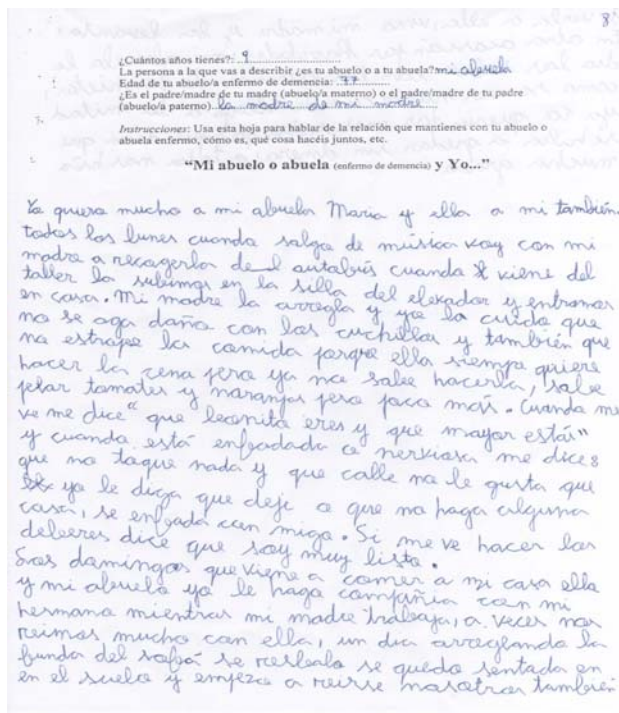 8
¿Cuántos años tienes?: 9
La persona a la que vas a describir ¿es tu abuelo o a tu abuela? mi abuela
Edad de tu abuelo/a enfermo de demencia: 77
¿Es el padre/madre de tu madre (abuelo/a materno) o el padre/madre de tu padre
(abuelo/a paterno). la madre de mi madre
Instrucciones: Usa esta hoja para hablar de la relación que mantienes con tu abuelo o
abuela enfermo, cómo es, qué cosa hacéis juntos, etc.
“Mi abuelo o abuela (enfermo de demencia) y Yo...”
Yo quiero mucho a mi abuela Maria y ella a mi también.
todos los lunes cuando salgo de música voy con mi
madre a recogerla del autobús cuando viene del
taller la subimos en la silla del elevador y entramos
en casa. Mi madre la arregla y yo la cuido que
no se aga daño con los cuchillos y también que
no estrope la comida porque ella siempre quiere
hacer la cena pero ya no sabe hacerla, sabe
pelar tomates y naranjas pero poco más. Cuando me
ve me dice “que bonita eres y que mayor estás”
y cuando está enfadada o nerviosa me dice
que no toque nada y que calle no le gusta que
yo le diga que deje o que no haga alguna
cosa, se enfada con migo. Si me ve hacer los
deberes dice que soy muy lista.
Los domingos que viene a comer a mi casa ella
y mi abuelo yo le hago compañia con mi
hermana mientras mi madre trabaja, a veces nos
reimos mucho con ella, un dia arreglando la
funda del sofá se resbalo se quedo sentada en
en el suelo y empezo a reirse nosotras también